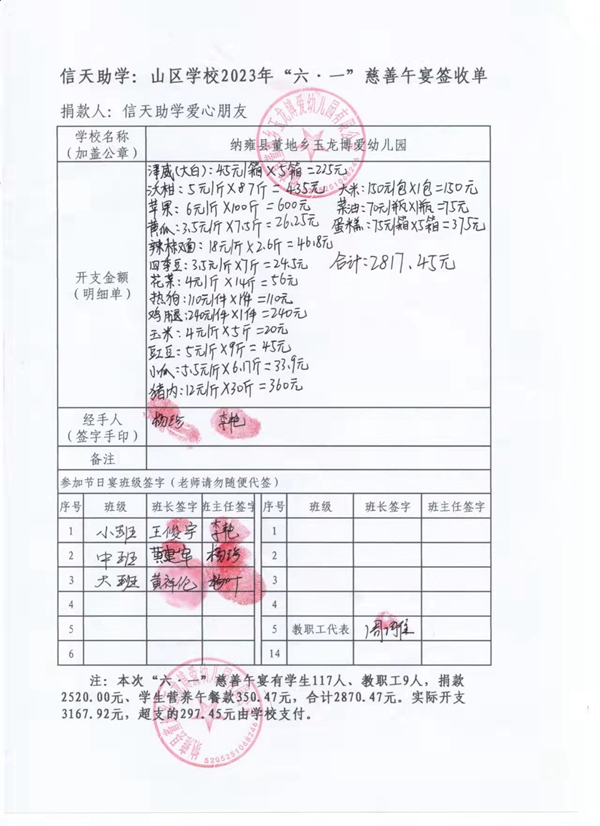 信天助学：山区学校2023年“六·一”慈善午宴签收单
捐款人：信天助学爱心朋友
学校名称
（加盖公章）
纳雍县董地乡玉龙博爱幼儿园
开支金额
（明细单）
津威(大白):45元/箱×5箱=225元
沃柑:5元/斤×87斤=435元 大米:150元/包×1包=150元
苹果:6元/斤×100斤=600元 菜油:70元/瓶×1瓶=75元
黄瓜:3.5元/斤×7.5斤=26.25元 蛋糕:75元/箱×5箱=375元
辣椒面:18元/斤×2.6斤=46.8元
四季豆:3.5元/斤×7斤=24.5元 合计:2817.45元
花菜:4元/斤×14斤=56元
热狗:110元/件×1件=110元
鸡腿:240元/件×1件=240元
玉米:4元/斤×5斤=20元
豇豆:5元/斤×9斤=45元
小瓜:5.5元/斤×6.17斤=33.9元
猪肉:12元/斤×30斤=360元
经手人
（签字手印）
李艳
备注
参加节日宴班级签字（老师请勿随便代签）
序号 班级 班长签字 班主任签字 序号 班级 班长签字 班主任签字
1 小班 王俊宇 李艳 1
2 中班 2
3 大班 杨叶 3
4 4
5 5 教职工代表
6 14
注：本次“六·一”慈善午宴有学生117人、教职工9人，捐款
2520.00元、学生营养午餐款350.47元，合计2870.47元。实际开支
3167.92元，超支的297.45元由学校支付。